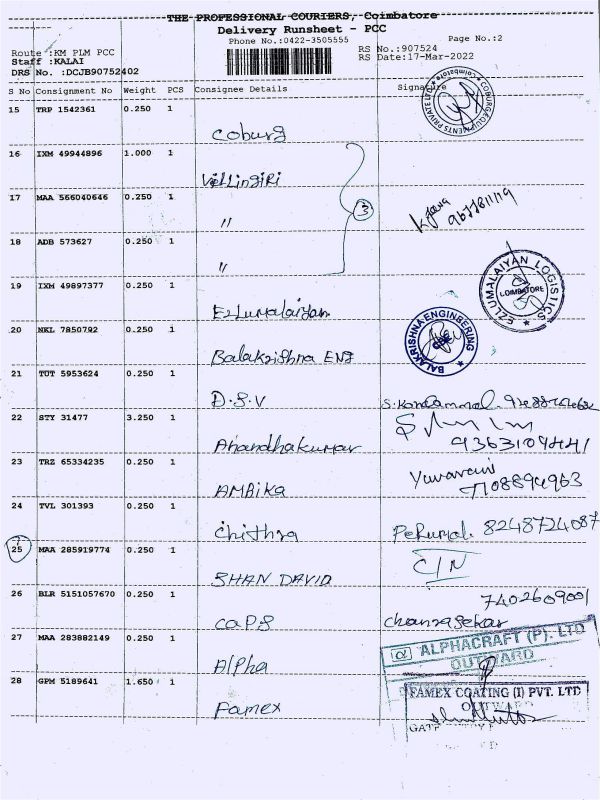 THE PROFESSIONAL COURIERS, Coimbatore
Delivery Runsheet - PCC
Phone No.:0422-3505555
Page No.:2
Route :KM PLM PCC
RS No.:907524
Staff :KALAI
RS Date:17-Mar-2022
DRS No. :DCJB90752402
S No Consignment No Weight PCS Consignee Details Signature
15 TRP 1542361 0.250 1
Coburg
COBURG EQUIPMENTS PRIVATE LTD Coimbatore
16 IXM 49944896 1.000 1
Vellingiri
17 MAA 566040646 0.250 1
"
3
18 ADB 573627 0.250 1
"
19 IXM 49897377 0.250 1
Ezlumalaiyan
EZLUMALAIYAN LOGISTICS COIMBATORE
20 NKL 7850792 0.250 1
Balakrishna ENG
BALAKRISHNA ENGINEERING
21 TUT 5953624 0.250 1
D.S.V
22 STY 31477 3.250 1
Anandhakumar
9363109441
23 TRZ 65334235 0.250 1
AMBika
7708894963
24 TVL 301393 0.250 1
Chithra
Perumal. 8248724087
25 MAA 285919774 0.250 1
SHAN DAVID
C/N
26 BLR 5151057670 0.250 1
7402609001
CAPS
Chandrasekar
27 MAA 283882149 0.250 1
Alpha
α ALPHACRAFT (P). LTD
OUTWARD
28 GPM 5189641 1.650 1
Famex
FAMEX COATING (I) PVT. LTD
OUTWARD